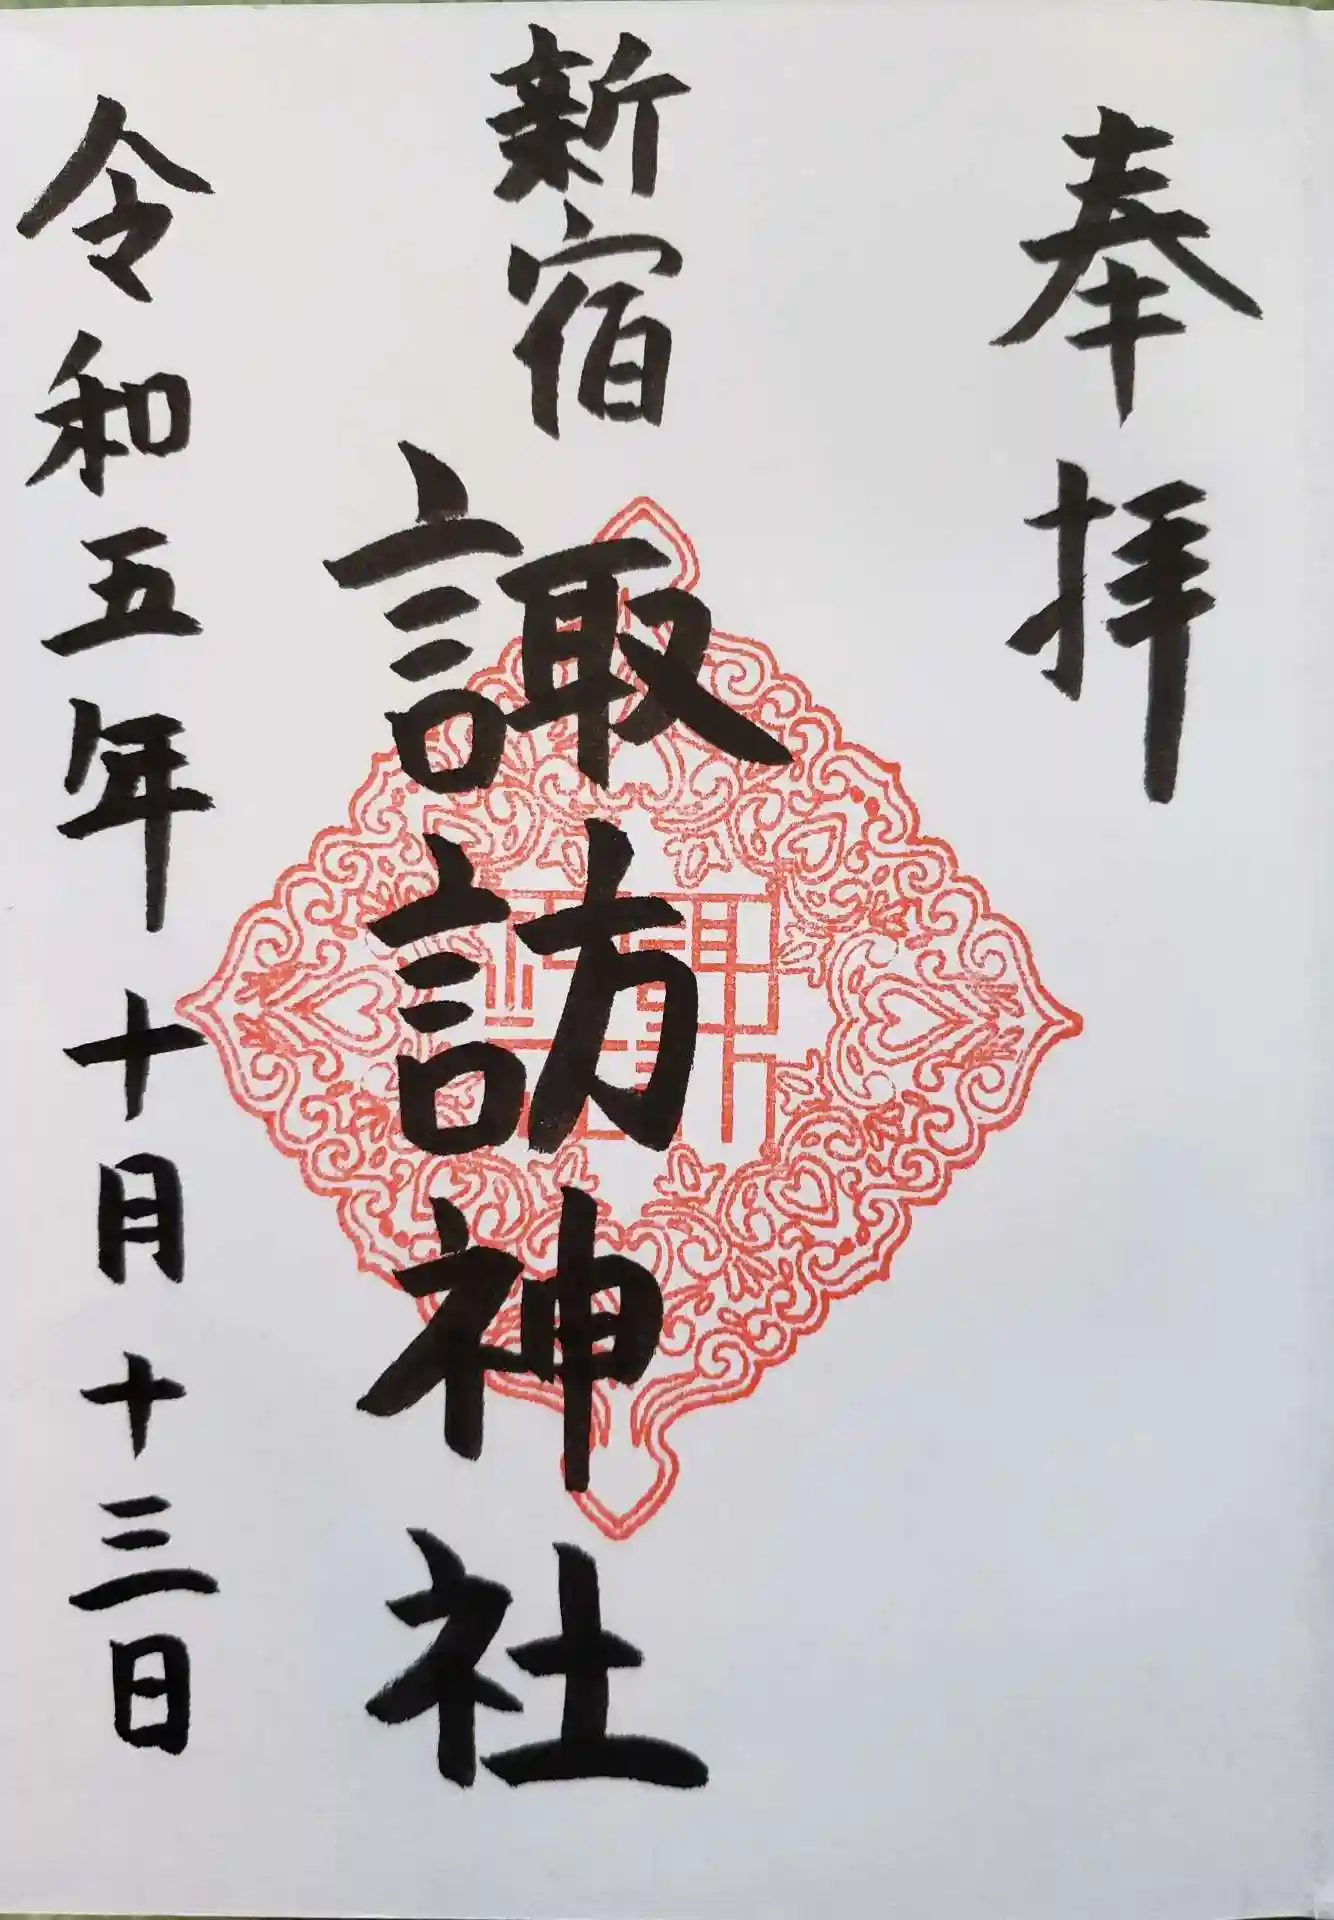 奉拝
新宿
諏訪神社
令和五年十月十三日